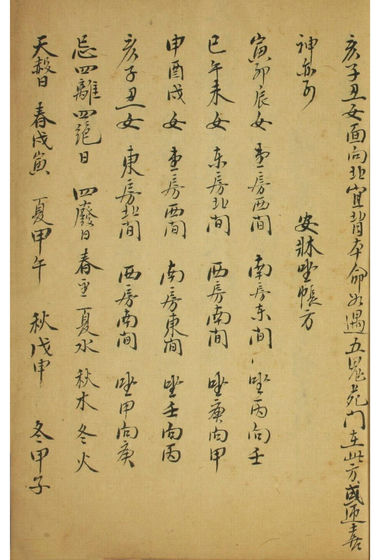 亥子丑女面向北宜背本命如遇五鬼死門在此方或迎喜
神亦可 安牀坐帳方
寅卯辰女 房西間 南房东间 坐丙向壬
巳午未女 东房北间 西房南间 坐庚向甲
申酉戌女 房西间 南房東间 坐壬向丙
亥子丑女 東房北间 西房南间 坐甲向庚
忌四離四絕日 四廢日春金夏水秋木冬火
天赦日 春戊寅 夏甲午 秋戊申 冬甲子